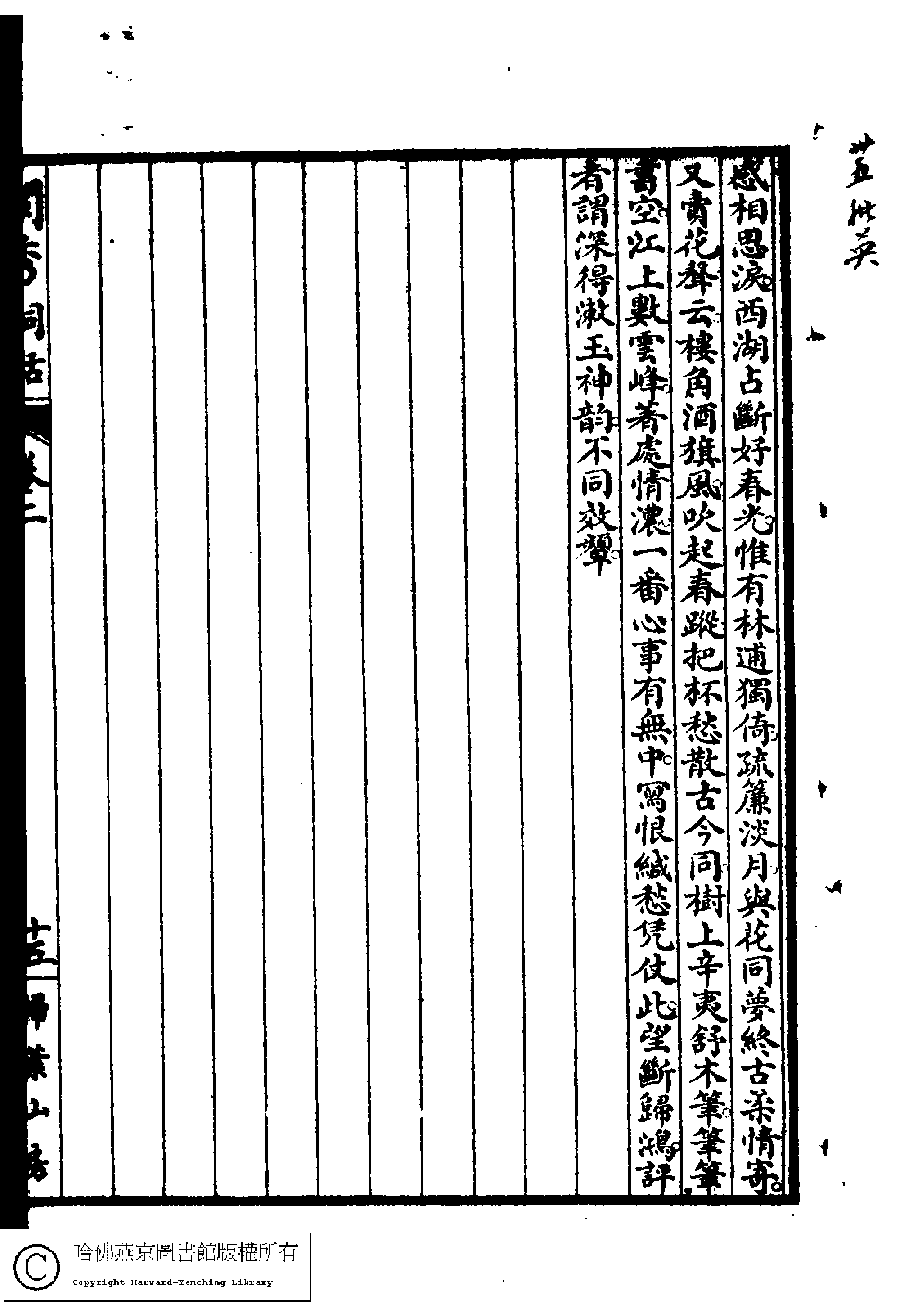 感相思淚西湖占斷好春光惟有林逋獨倚疏簾淡月與花同夢終古柔情寄
又賣花聲云樓角酒旗風吹起春蹤把杯愁散古今同樹上辛夷舒木筆筆筆
書空江上數雲峰著處情濃一番心事有無中寫恨緘愁凭仗此望斷歸鴻評
者謂深得漱玉神韵不同效顰
閨秀詞話
卷二
十五
掃葉山房
哈佛燕京圖書館版權所有
Copyright Harvard-Yenching Library